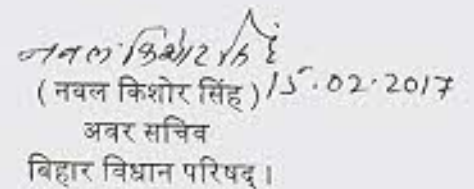 नवल किशोर सिंह
(नवल किशोर सिंह) 15.02.2017
अवर सचिव
बिहार विधान परिषद् ।